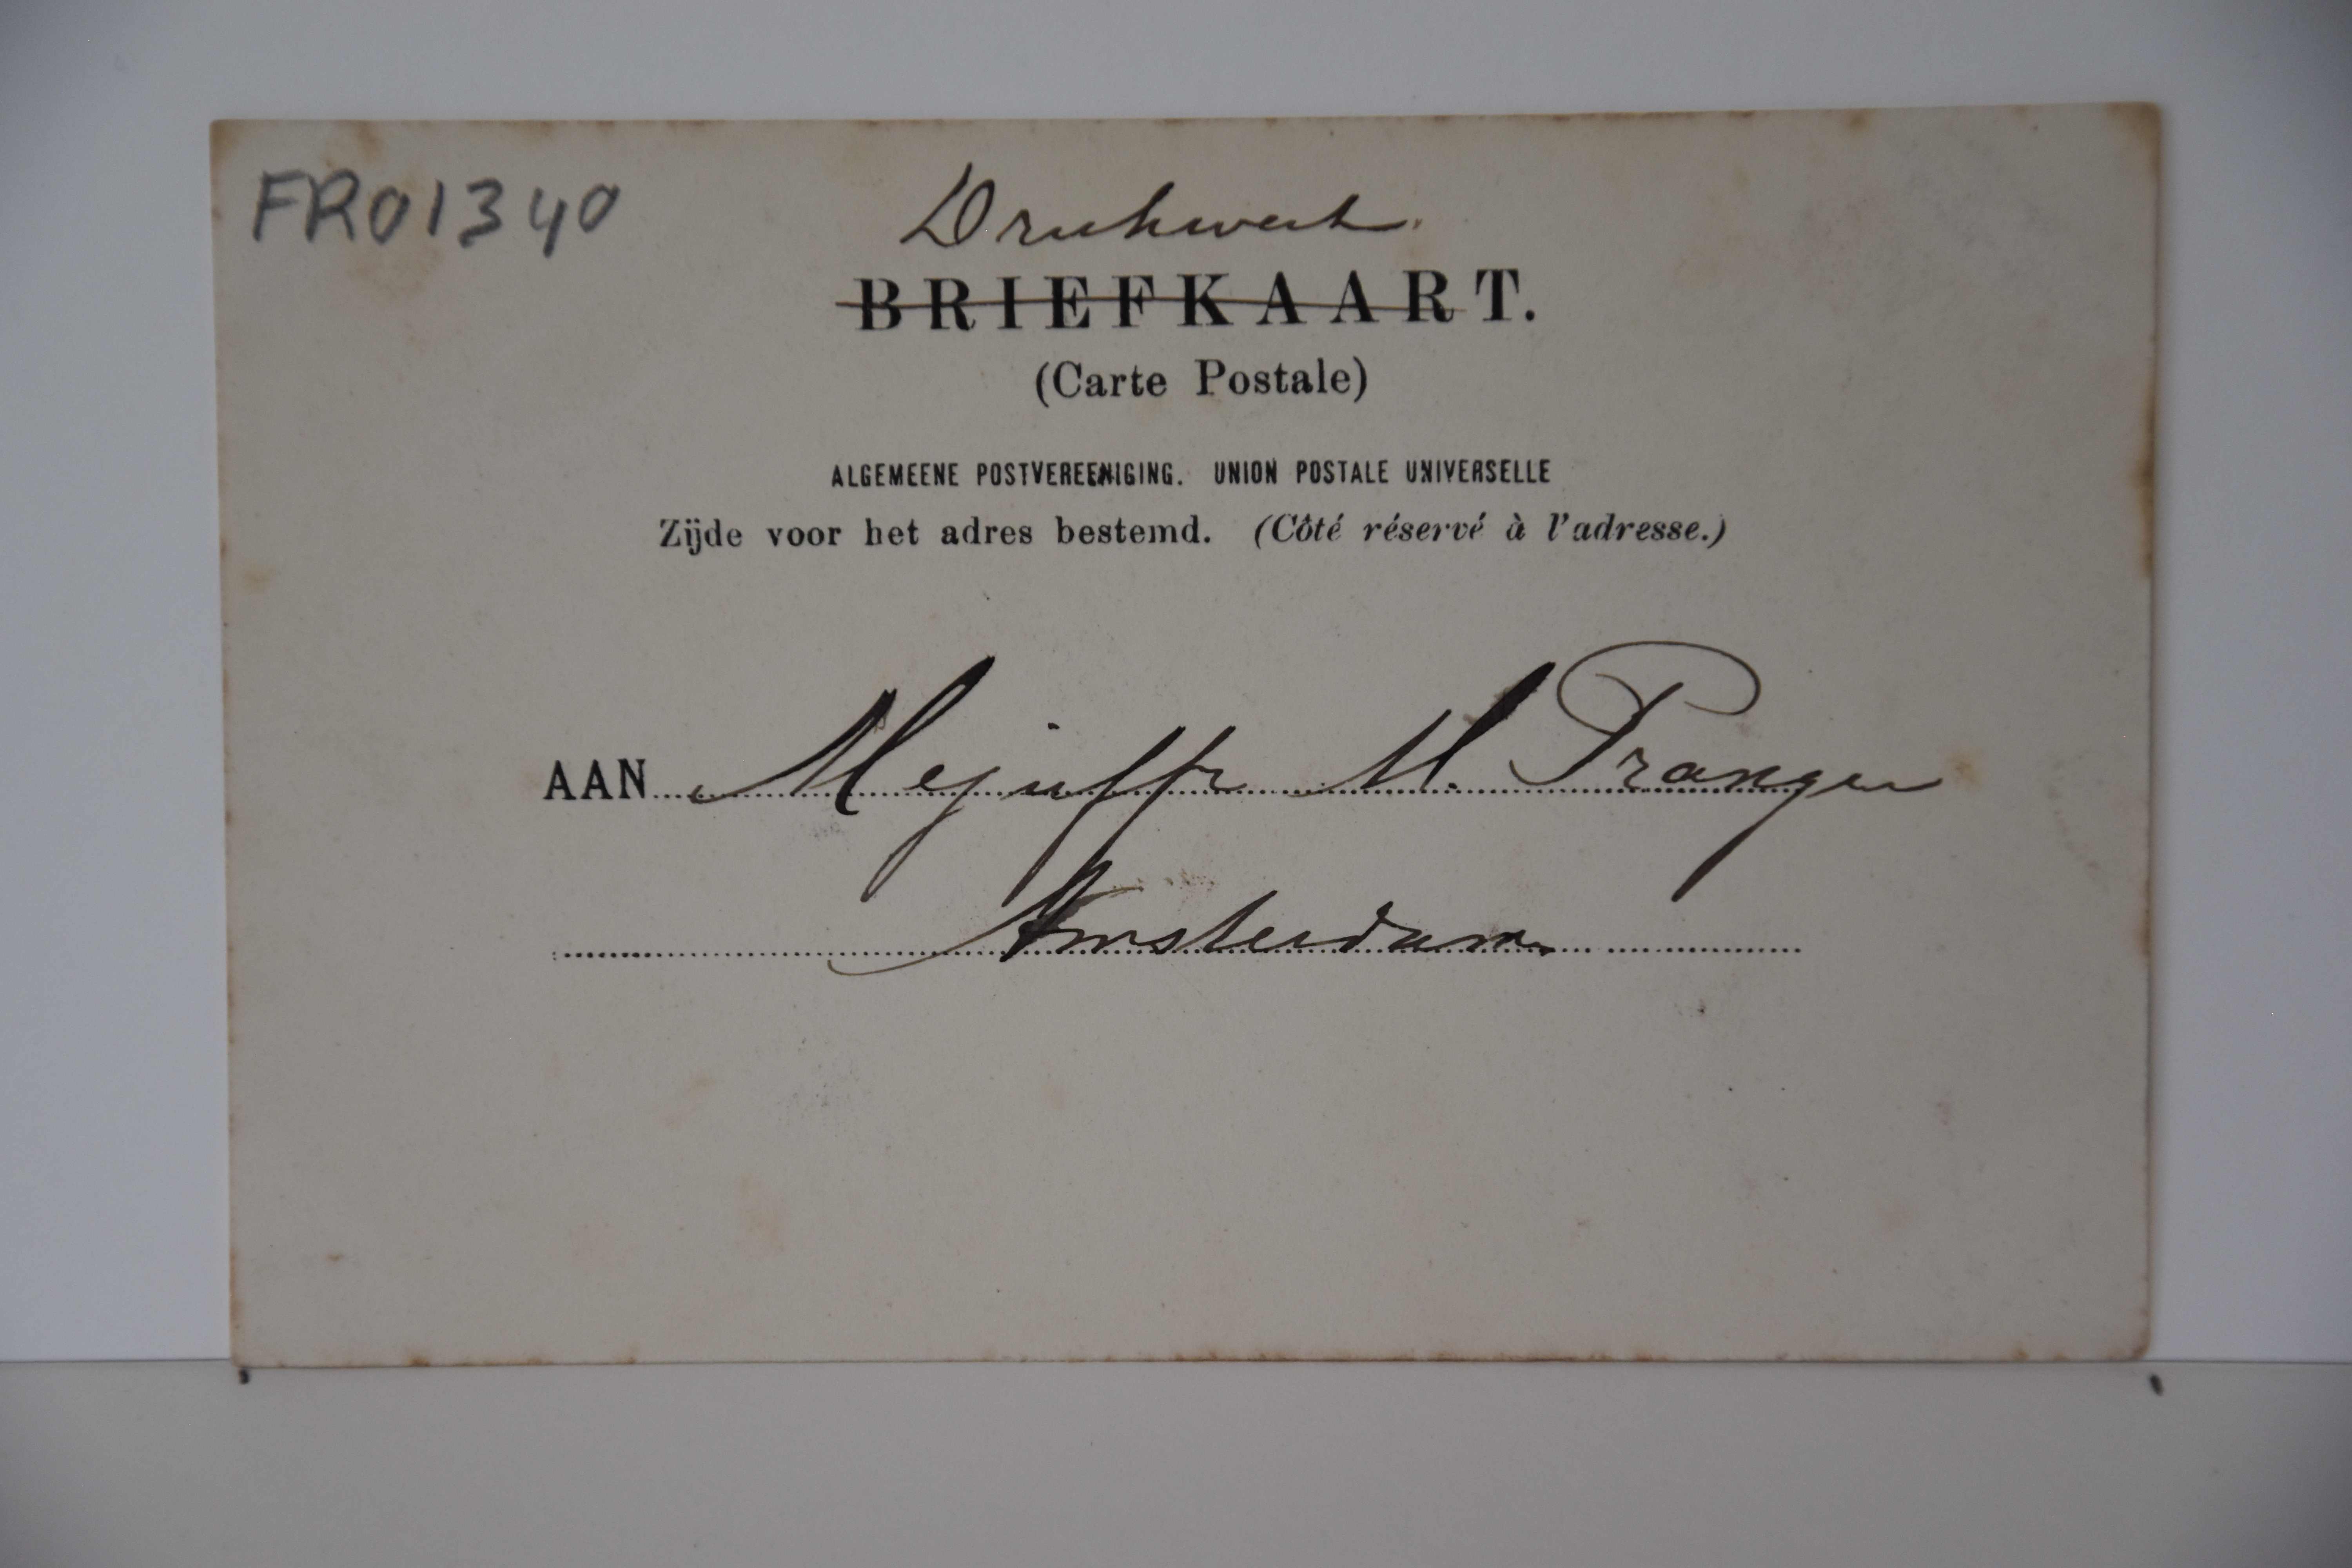 FR01340
Drukwerk.
BRIEFKAART.
(Carte Postale)
ALGEMEENE POSTVEREENIGING. UNION POSTALE UNIVERSELLE
Zijde voor het adres bestemd. (Côté réservé à l'adresse.)
AAN Mejuffr M. Pranger
Amsterdam.